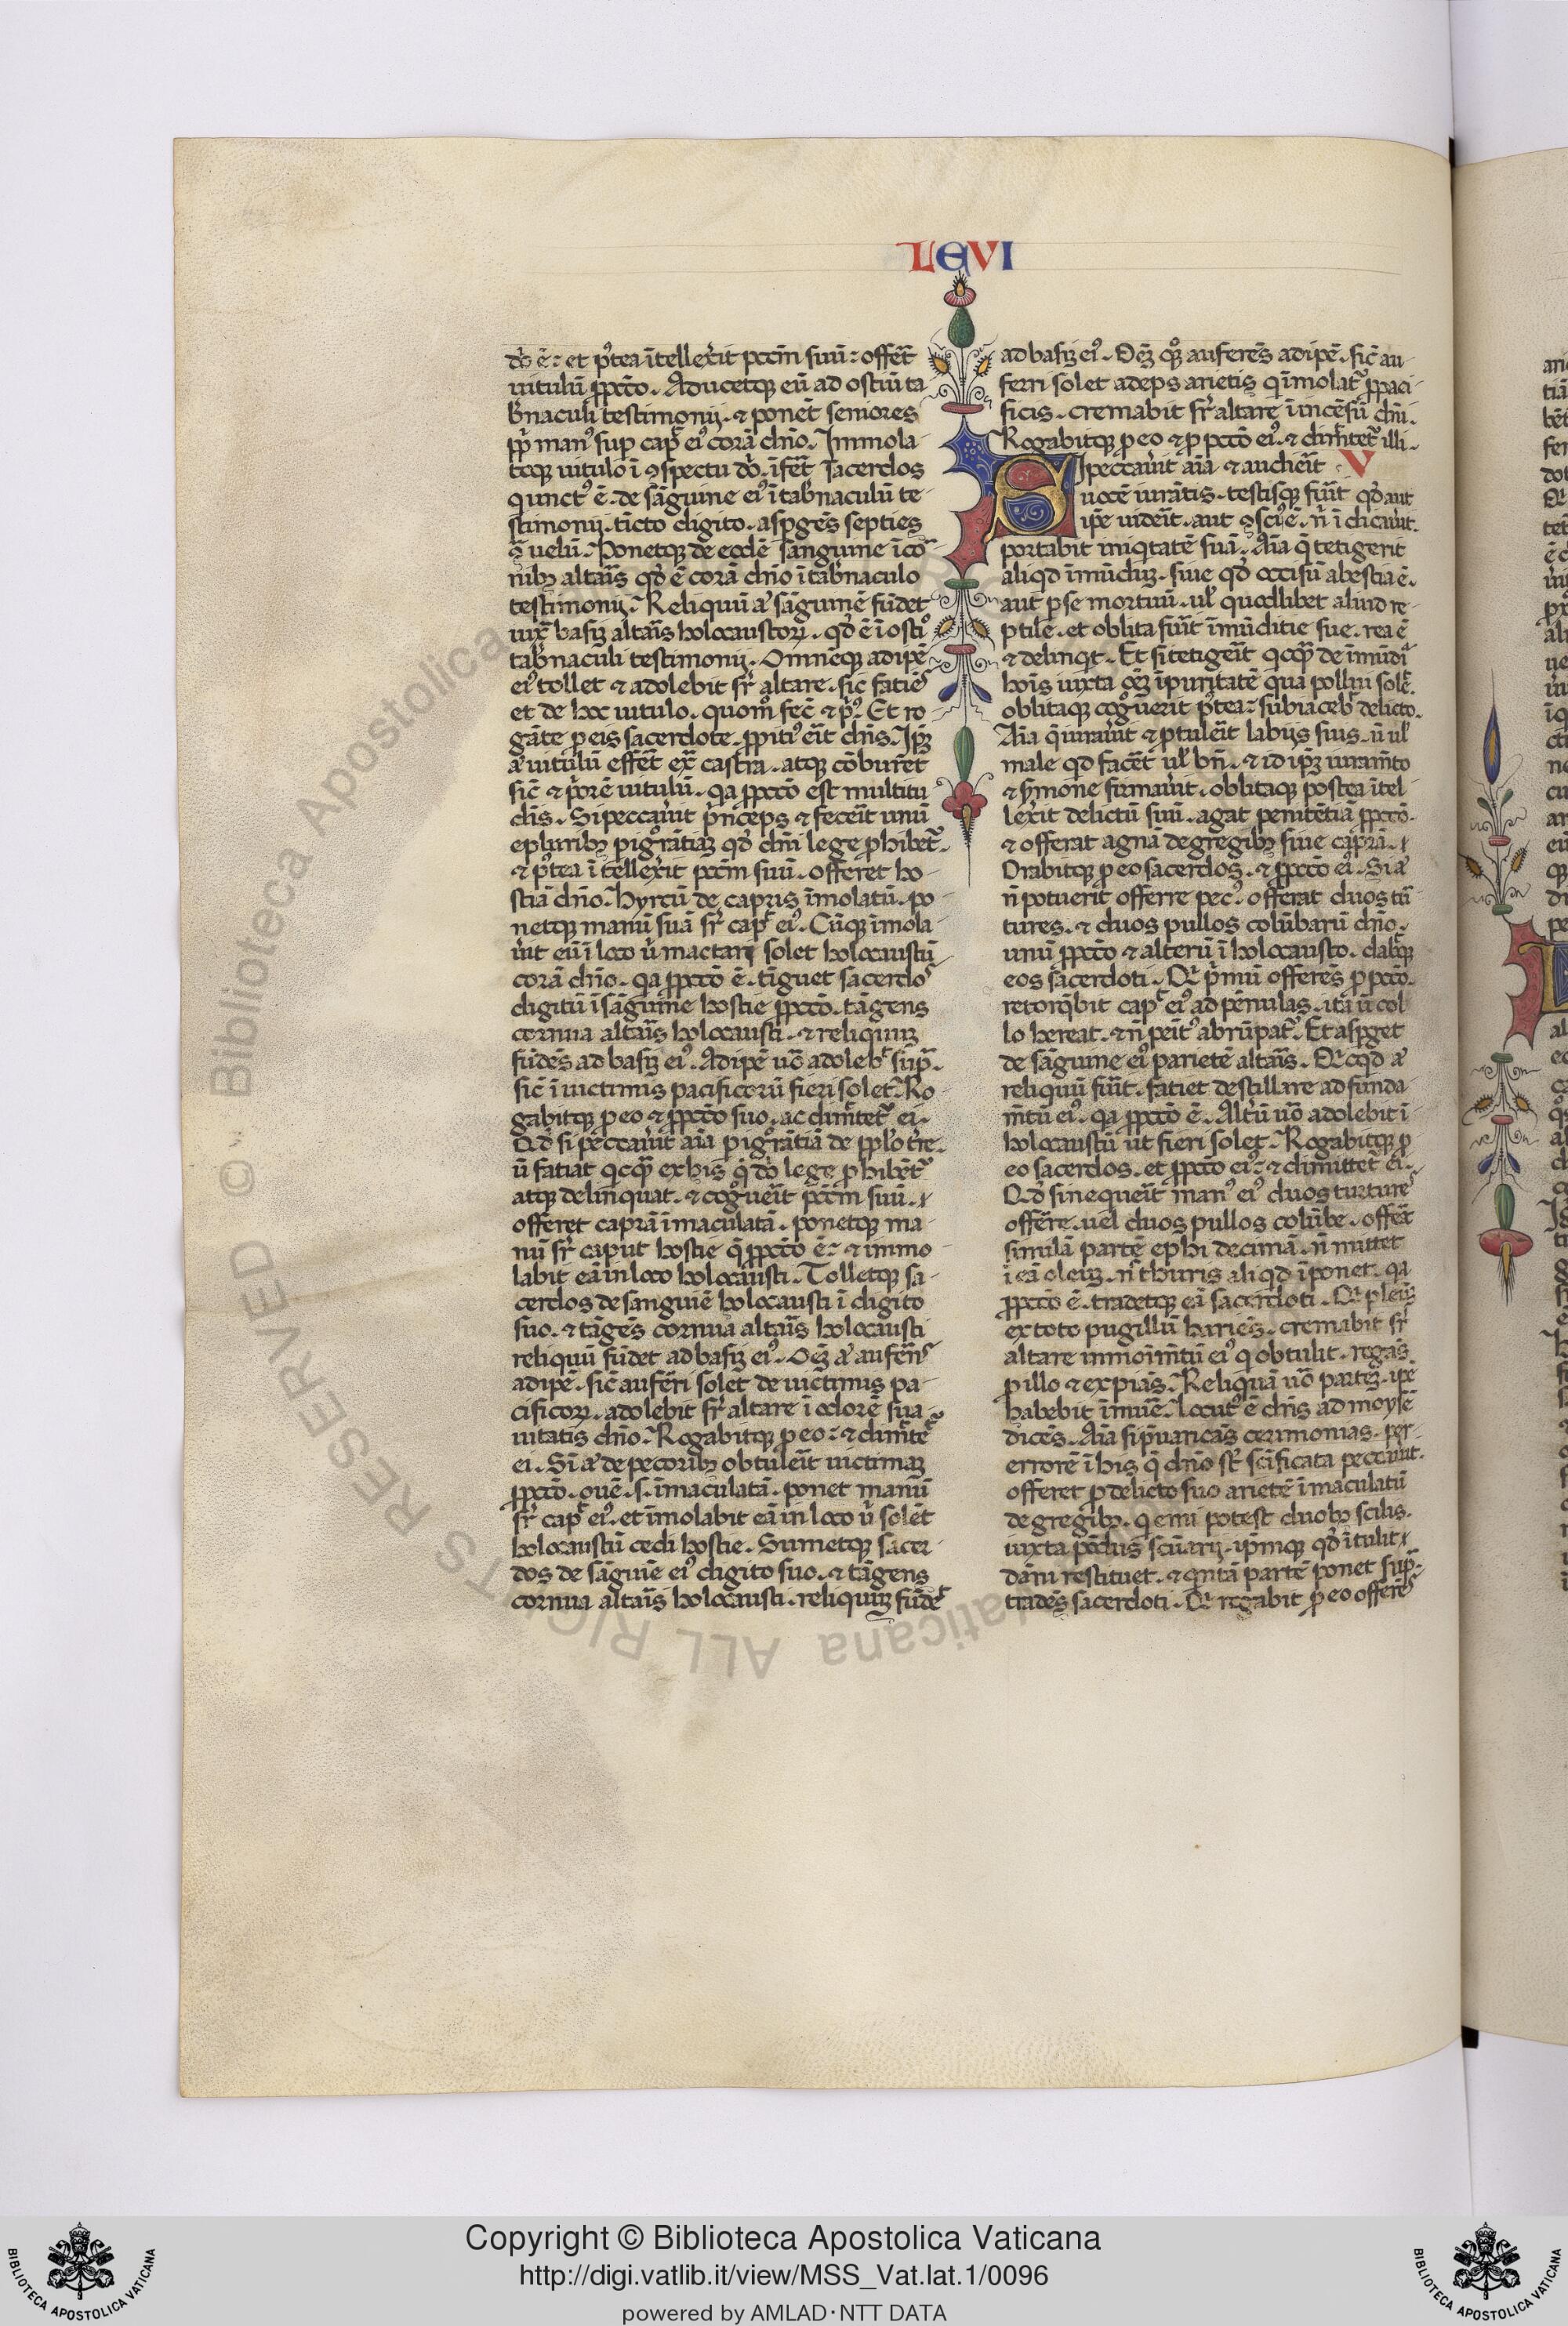 LEVI
dō ē: et p̄tea ītellexit pccm̄ suū: offēt
uitulū ꝓpccō. Aducetqꝫ eū ad ostiū ta
b̄naculi testimonij. ⁊ ponēt seniores
ppl̄i man⁹ sup cap̄ ei⁹ corā dn̄o. Immola
toqꝫ uitulo ī ꝯspectu dn̄i. īfēt sacerdos
q unct⁹ ē. de sāguine ei⁹ ī tab̄naculū te
stimonij. tīcto digito. aspgēs septies
ꝯ̄ uelū. Ponetqꝫ de eodē sanguine ī cor
nibꝫ altaīs qd̄ ē corā dn̄o ī tab̄naculo
testimonij. Reliquū aͥ sāguinē fūdet
iuxͭ basiꝫ altaīs holocaustoꝝ. qd̄ ē ī ostiͦ
tab̄naculi testimonij. Omneqꝫ adipē
ei⁹ tollet ⁊ adolebit sr̄ altare. sic faciēs
et de hoc uitulo. quoͫ fec̄ ⁊ pͥ⁹. Et ro
gāte p eis sacerdote. ꝓpiti⁹ eīt dn̄s. Ip̄ꝫ
aͥ uitulū effēt ex̄ castra. atqꝫ cōburet
sic̄ ⁊ pͥorē uitulū. qa ꝓpccō est multitu
dīs. Si peccauīt pͥnceps ⁊ feceīt unū
e pluribꝫ p igͦrātiaꝫ qd̄ dn̄i lege ꝓhibet᷑.
⁊ p̄tea ītellexit pccm̄ suū. offeret ho
stiā dn̄o. hyrcū de capris īmolatū. po
netqꝫ manū suā sr̄ cap̄ ei⁹. Cūqꝫ īmola
ūit eū ī loco ū mactari solet holocaustū
corā dn̄o. qa ꝓpccō ē. tīguet sacerdos
digitū ī sāguine hostie ꝓpccō. tāgens
cornua altaīs holocausti. ⁊ reliquuꝫ
fūdēs ad basiꝫ ei⁹. Adipē uō adoleb̄ sup̄.
sic̄ ī uictimis pacificorū fieri solet. Ro
gabitqꝫ p eo ⁊ ꝓpccō suo. ac dimītet᷑ ei.
Qd̄ si peccauīt aīa p igͦrātiā de ppl̄o tr̄e.
ū faciat qcqͣꝫ ex his q̄ dn̄i lege ꝓhibēt᷑
atqꝫ delinquat. ⁊ cogͦueīt pccm̄ suū.
offeret caprā īmaculatā. ponetqꝫ ma
nū sr̄ caput hostie q̄ ꝓpccō ē: ⁊ immo
labit eā in loco holocausti. Tolletqꝫ sa
cerdos de sanguiē holocausti ī digito
suo. ⁊ tāgēs cornua altaīs holocausti
reliquū fūdet ad basiꝫ ei⁹. Oēꝫ aͥ auferēs
adipē. sic̄ aufēri solet de uictimis pa
cificoꝝ. adolebit sr̄ altare ī odorē sua
uitatis dn̄o. Rogabitqꝫ p eo: ⁊ dimītet᷑
ei. Sī aͥ de pecoribꝫ obtuleīt uictimaꝫ
ꝓpccō. ouē. s. īmaculatā. ponet manū
sr̄ cap̄ ei⁹. et īmolabit eā in loco ū solēt
holocaustū cedi hostie. Sumetqꝫ sacer
dos de sāguiē ei⁹ digito suo. ⁊ tāgens
cornua altaīs holocausti. reliquuꝫ fūdet
ad basiꝫ ei⁹. Oēꝫ qͦꝫ auferēs adipē. sic̄ au
ferri solet adeps arietis q īmolat᷑ ꝓpaci
ficis. cremabit sr̄ altare ī incēsū dn̄i.
Rogabitqꝫ p eo ⁊ p pccō ei⁹. ⁊ dimītet᷑ illi.
SI peccauīt aīa ⁊ audieīt V
uocē iurātis. testisqꝫ fuīt qd̄ aut
ip̄e uideīt. aut ꝯsci⁹ ē. n̄ īdicauīt.
portabit iniqtatē suā. Aīa q̄ tetigerit
aliqd īmūduꝫ. siue qd̄ occisū a bestia ē.
aut p se mortuū. ul̄ quodlibet aliud re
ptile. et oblita fuīt īmūditie sue. rea ē
⁊ delinqt. Et si tetigeīt qcqͣꝫ de īmūdiͣ
hoīs iuxta oēꝫ īpuritatē qua pollui solꝫ.
oblitaqꝫ cogͦuerit p̄tea: subiaceb̄ delicto.
Aīa q̄ iurauīt ⁊ ꝓtuleīt labijs suis. ū ul̄
male qd facēt ul̄ bn̄. ⁊ id ip̄ꝫ iuramīto
⁊ sr̄mone firmauīt. oblitaqꝫ postea ītel
lexit delictū suū. agat penitētiā ꝓpccō.
⁊ offerat agnā de gregibꝫ siue caprā.
Orabitqꝫ p eo sacerdos. ⁊ ꝓpccō ei⁹. Si aͥ
n̄ potuerit offerre pec⁹. offerat duos tur
tures. ⁊ duos pullos colūbarū dn̄o.
unū ꝓpccō ⁊ alterū ī holocausto. dabitqꝫ
eos sacerdoti. Qͥ pͥmū offerēs p pccō.
retorqͤbit cap̄ ei⁹ ad pēnulas. ita ū col
lo hereat. ⁊ n̄ peīt⁹ abrūpat᷑. Et aspget
de sāguine ei⁹ parietē altaīs. Qͥcqd aͥ
reliquū fuīt. faciet destillare ad funda
mtū ei⁹. qa ꝓpccō ē. Altū uō adolebit ī
holocaustū ut fieri solet. Rogabitqꝫ p
eo sacerdos. et ꝓpccō ei⁹: ⁊ dimittet᷑ ei.
Qd̄ si nequeīt man⁹ ei⁹ duos turtures
offēre. uel duos pullos colūbe. offēt
similā partē ephi decimā. n̄ mittet
ī eā oleuꝫ. n̄ thuris aliqd īponet. qa
ꝓpccō ē. tradetqꝫ eā sacerdoti. Qͥ plenū
ex toto pugillū hauriēs. cremabit sr̄
altare in moīmtū ei⁹ q obtulit. rogās
p illo ⁊ expiās. Reliquā uō parteꝫ ip̄e
habebit ī mūe. Locut⁹ ē dn̄s ad moysē
dicēs. Aīa si p̄uaricās cerimonias. per
errorē ī his q̄ dn̄o st̄ scīficata peccauīt.
offeret p delicto suo arietē īmaculatū
de gregibꝫ. q emi potest duobꝫ siclis.
iuxta pōdus scūarij. ip̄mqꝫ qd̄ ītulit
dāni restituet. ⁊ qntā partē ponet sup̄.
tradēs sacerdoti. Qͥ rogabit p eo offerēs
Copyright © Biblioteca Apostolica Vaticana
http://digi.vatlib.it/view/MSS_Vat.lat.1/0096
powered by AMLAD·NTT DATA
BIBLIOTECA APOSTOLICA VATICANA
BIBLIOTECA APOSTOLICA VATICANA
© Biblioteca Apostolica Vaticana ALL RIGHTS RESERVED